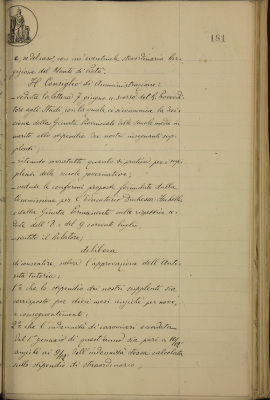 181
e, se del caso, con un eventuale straordinaria Ero-
gazione del Monte di Pietà.
Il Consiglio di Amministrazione:
- veduta la lettera 7 giugno a. corso del R. Provvedi-
tore agli Studi, con la quale si comunica la deci-
sione della Giunta Provinciale delle scuole medie in
merito allo stipendio dei nostri insegnanti sup-
plenti;
- ritenuto innanzitutto quanto si pratica pei sup-
plenti delle scuole governative;
- vedute le conformi proposte formulate dalla
Commissione per l'Educatorio Duchessa Isabella
e dalla Giunta Permanente nelle rispettive se-
dute dell' 8 e del 9 corrente luglio;
- sentito il relatore;
delibera
di consentire, salva l'approvazione dell'Auto-
rità tutoria:
1° che lo stipendio dei nostri supplenti sia
corrisposto per dieci mesi anziché per nove,
e conseguentemente;
2° che l'indennità di caroviveri erogata
dal 1° gennaio di quest'anno sia pari a 10/12
anziché ai 9/12 dell'indennità stessa calcolata
sullo stipendio di straordinario;